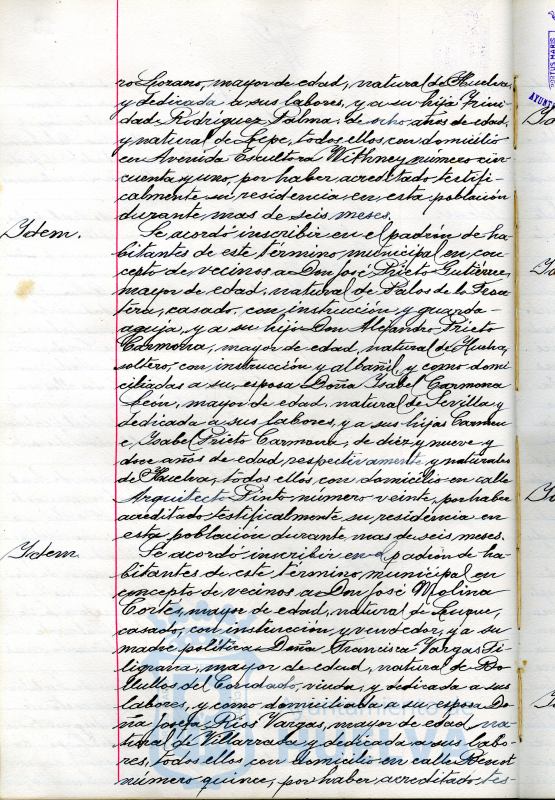 ro Lozano, mayor de edad, natural de Huelva,
y dedicada a sus labores, y a su hija Trini-
dad Rodríguez Palma, de ocho años de edad,
y natural de Lepe, todos ellos con domicilio
en Avenida Escultora Withney número cin-
cuenta y uno, por haber acreditado testifi-
calmente su residencia en esta población
durante mas de seis meses.
Idem.
Se acordó inscribir en el padrón de ha-
bitantes de este término municipal en con-
cepto de vecinos a Don José Prieto Gutiérrez,
mayor de edad, natural de Palos de la Fron-
tera, casado, con instrucción y guarda-
aguja, y a su hijo Don Alejandro Prieto
Carmona, mayor de edad, natural de Huelva,
soltero, con instrucción y albañil, y como domi-
ciliadas a su esposa Doña Isabel Carmona
León, mayor de edad, natural de Sevilla y
dedicada a sus labores, y a sus hijas Carmen
e Isabel Prieto Carmona, de diez y nueve y
doce años de edad, respectivamente, y naturales
de Huelva, todos ellos con domicilio en calle
Arquitecto Pinto número veinte, por haber
acreditado testificalmente su residencia en
esta población durante mas de seis meses.
Idem.
Se acordó inscribir en el padrón de ha-
bitantes de este término municipal en
concepto de vecinos a Don José Molina
Cortés, mayor de edad, natural de Luque,
casado, con instrucción y vendedor, y a su
madre política Doña Francisca Vargas Fi-
ligrana, mayor de edad, natural de Bo-
llullos del Condado, viuda, y dedicada a sus
labores, y como domiciliada a su esposa Do-
ña Josefa Rios Vargas, mayor de edad, na-
tural de Villarrasa y dedicada a sus labo-
res, todos ellos con domicilio en calle Benot
número quince, por haber acreditado tes-
Ayuntamiento de
HUELVA
PORTUS MARIS
AYUNT